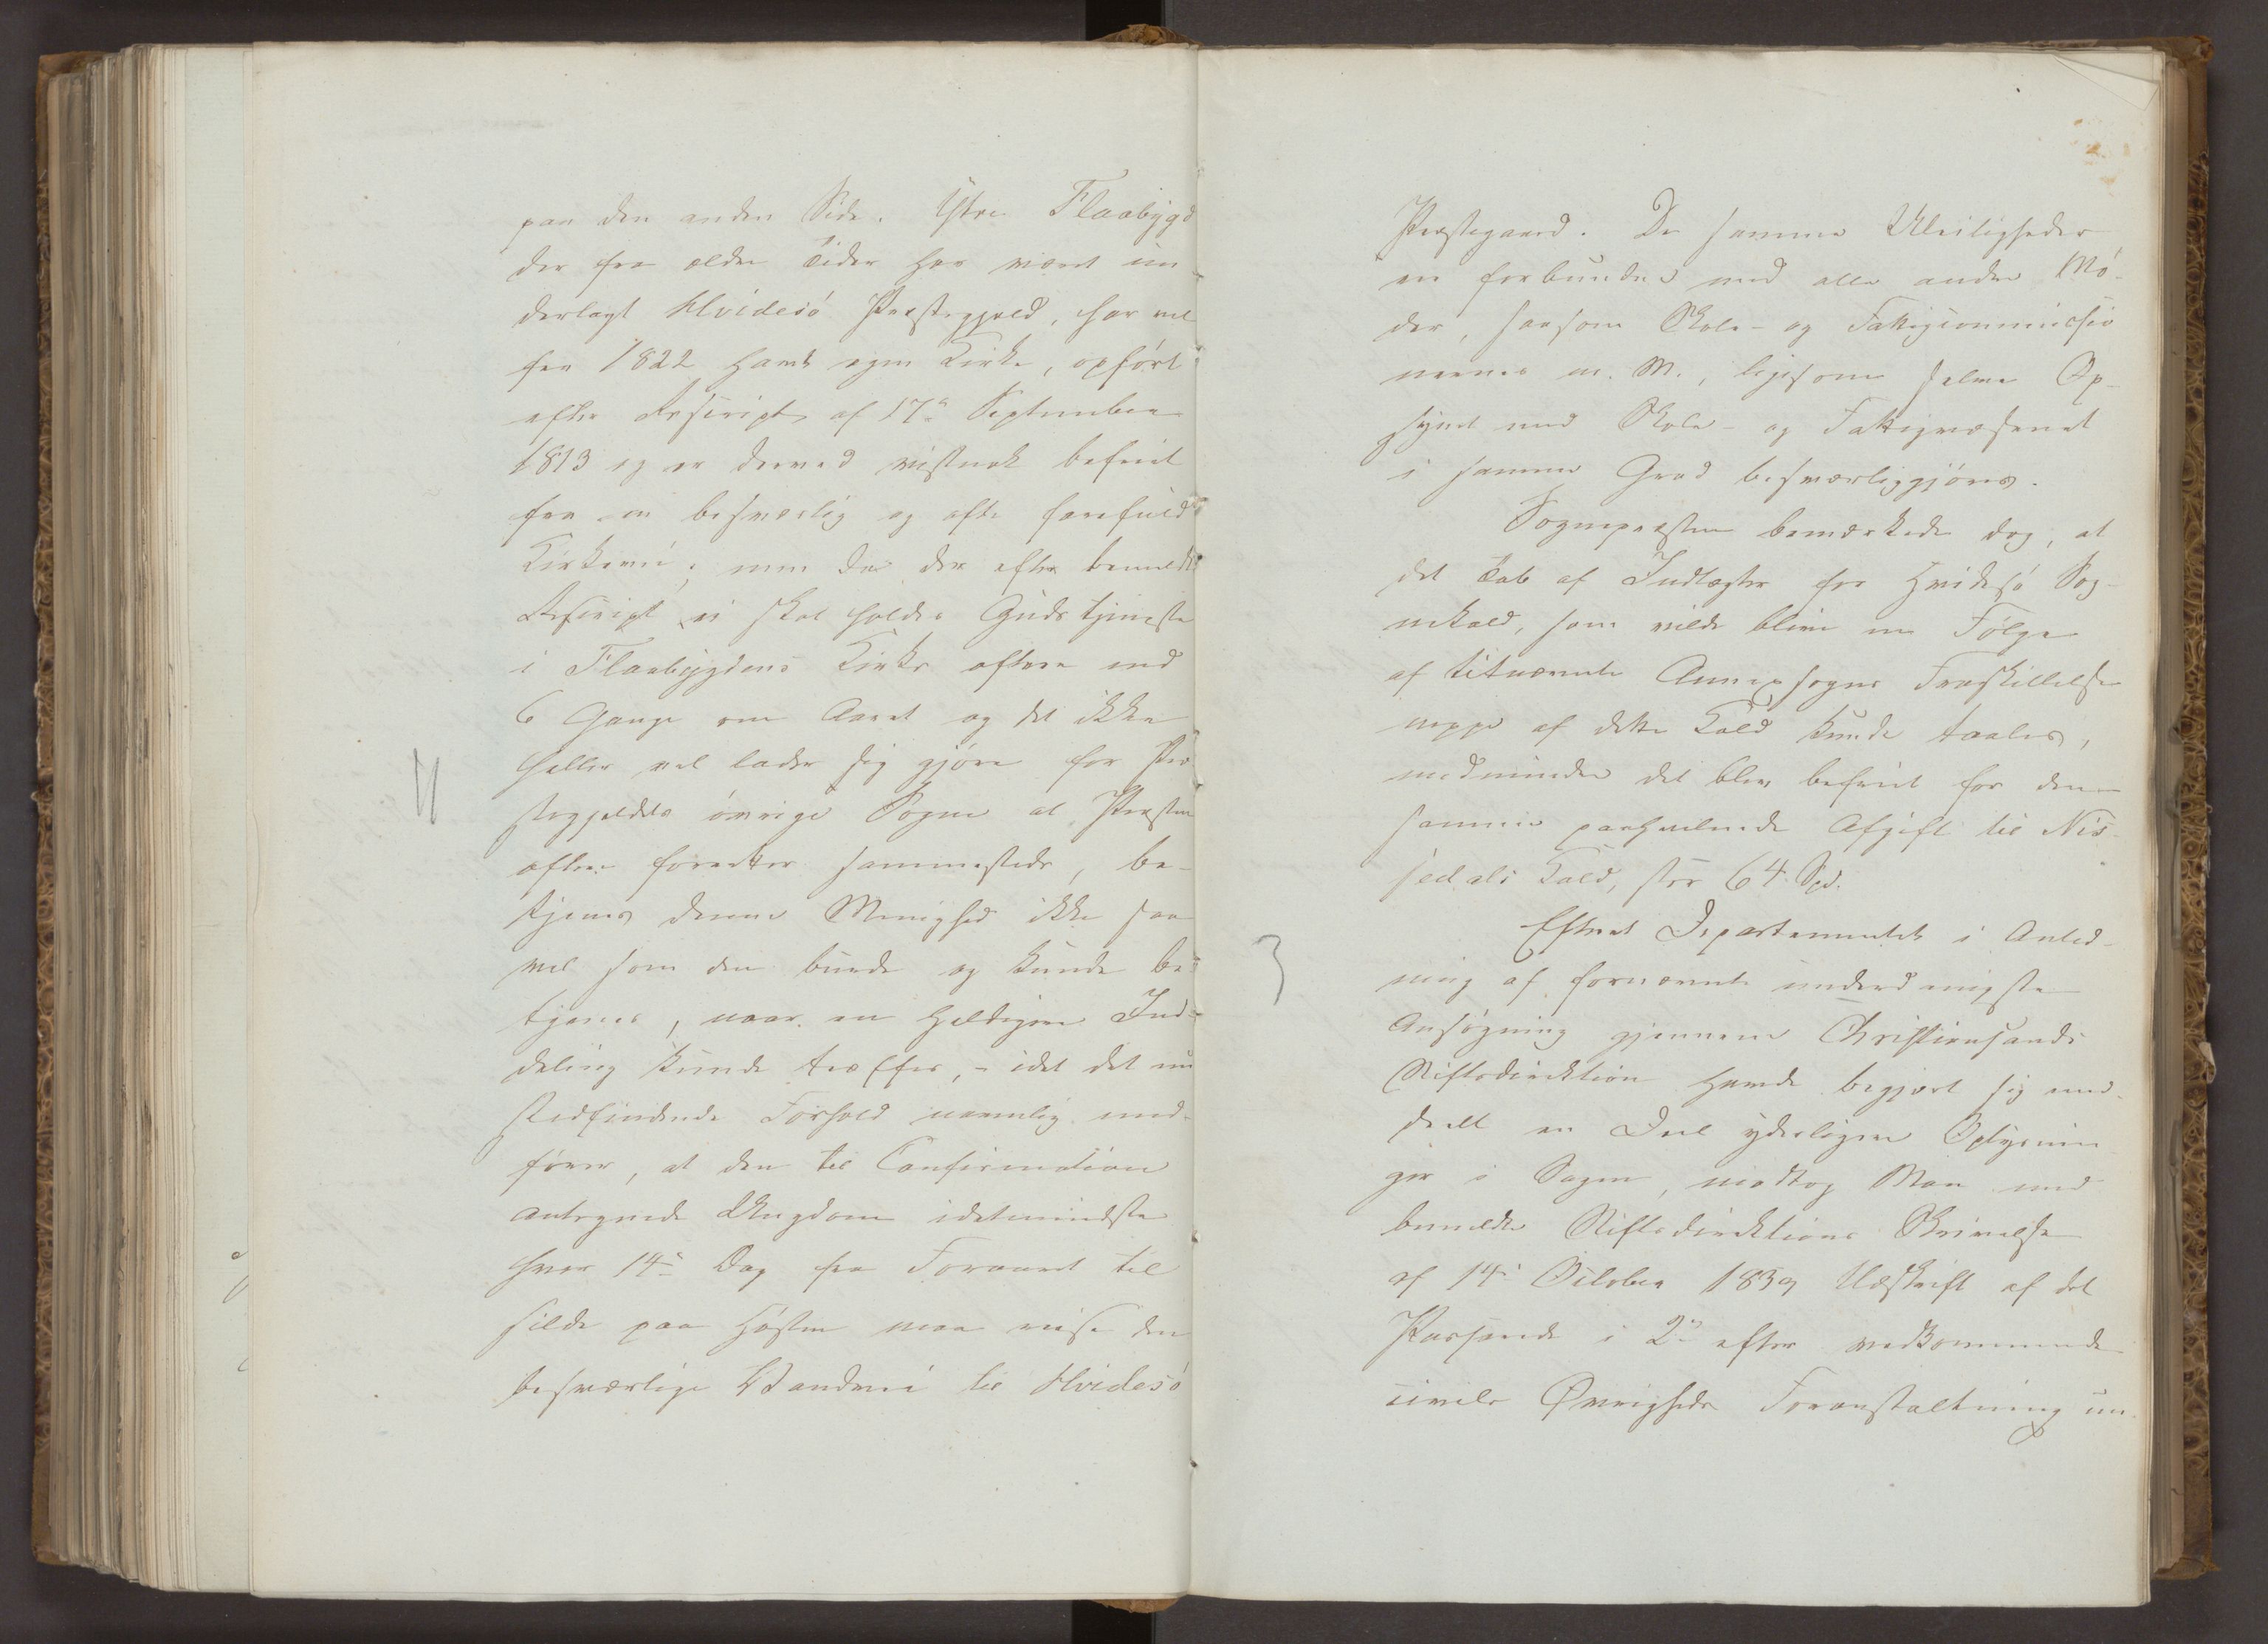 paa den anden Side. Ytre Flaabygd
der fra ældre Tider har været un-
derlagt Hvidesö Præstegjeld, har vel
fra 1822 havt egen Kirke, opfört
efter Rescript af 17de September
1813 og er derved vistnok befriet
fra en besværlig og ofte farefuld
Kirkevei; men da der efter bemeldte
Rescript ei skal holdes Gudstjeneste
i Flaabygdens Kirke oftere end
6 Gange om Aaret og det ikke
heller vel lader sig gjöre for Præ
stegjeldets övrige Sogne at Præsten
oftere foretter sammesteds, be-
tjenes denne Menighed ikke saa
vel som den burde og kunde be-
tjenes, naar en heldigere Ind-
deling kunde træffes, - idet det nu
stedfindende Forhold nemlig med-
förer, at den til Confirmation
antegnede Ungdom idetmindste
hver 14de Dag fra Foraaret til
silde paa Hösten maa reise den
besværlige Vandvei til Hvidesö
Præstegaard. De samme Uleiligheder
ere forbundne med alle andre Mö-
der, saasom Skole- og Fattigcommissio
nernes m. M., ligesom selve Op-
synet med Skole- og Fattigvæsenet
i samme Grad besværliggjöres.
Sognepræsten bemærkede dog, at
det Tab af Indtægter for Hvidesö Sog-
nekald, som vilde blive en Fölge
af titnævnte Annexsogns Fraskillelse
neppe af dette Kald kunde taales,
medmindre det blev befriet for den
samme paahvilende Afgift til Nis-
sedals Kald, stor 64 Spd.
Efterat Departementet i Anled-
ning af fornævnte underdanigste
Ansögning gjennem Christiansands
Stiftsdirektion havde begjært sig med-
deelt en Deel yderligere Oplysnin
ger i Sagen, modtog Man med
bemeldte Stiftsdirektions Skrivelse
af 14de October 1839 Udskrift af det
Passerede i 2de efter vedkommende
civile Övrigheds Foranstaltning un-